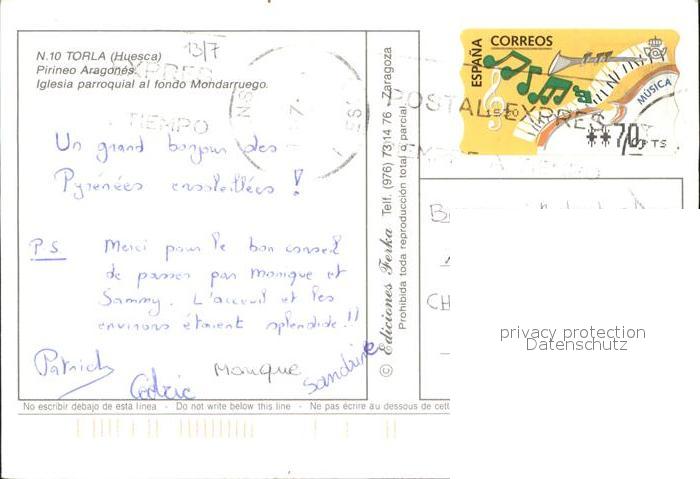 N.10 TORLA (Huesca)
Pirineo Aragonés.
Iglesia parroquial al fondo Mondarruego.
13/7
Un grand bonjour des
Pyrénées ensoleillées !
P.S. Merci pour le bon conseil
de passer par Monique et
Sammy. L'accueil et les
environs étaient splendide !!
Patrick
Cédric
Monique
Sandrine
No escribir debajo de esta línea - Do not write below this line - Ne pas écrire au dessous de cett
© Ediciones Ferka Telf. (976) 73 14 76 Zaragoza
Prohibida toda reproducción total o parcial.
ESPAÑA
CORREOS
MÚSICA
**70 PTS
POSTAL EXPRES
TIEMPO
CH
privacy protection
Datenschutz